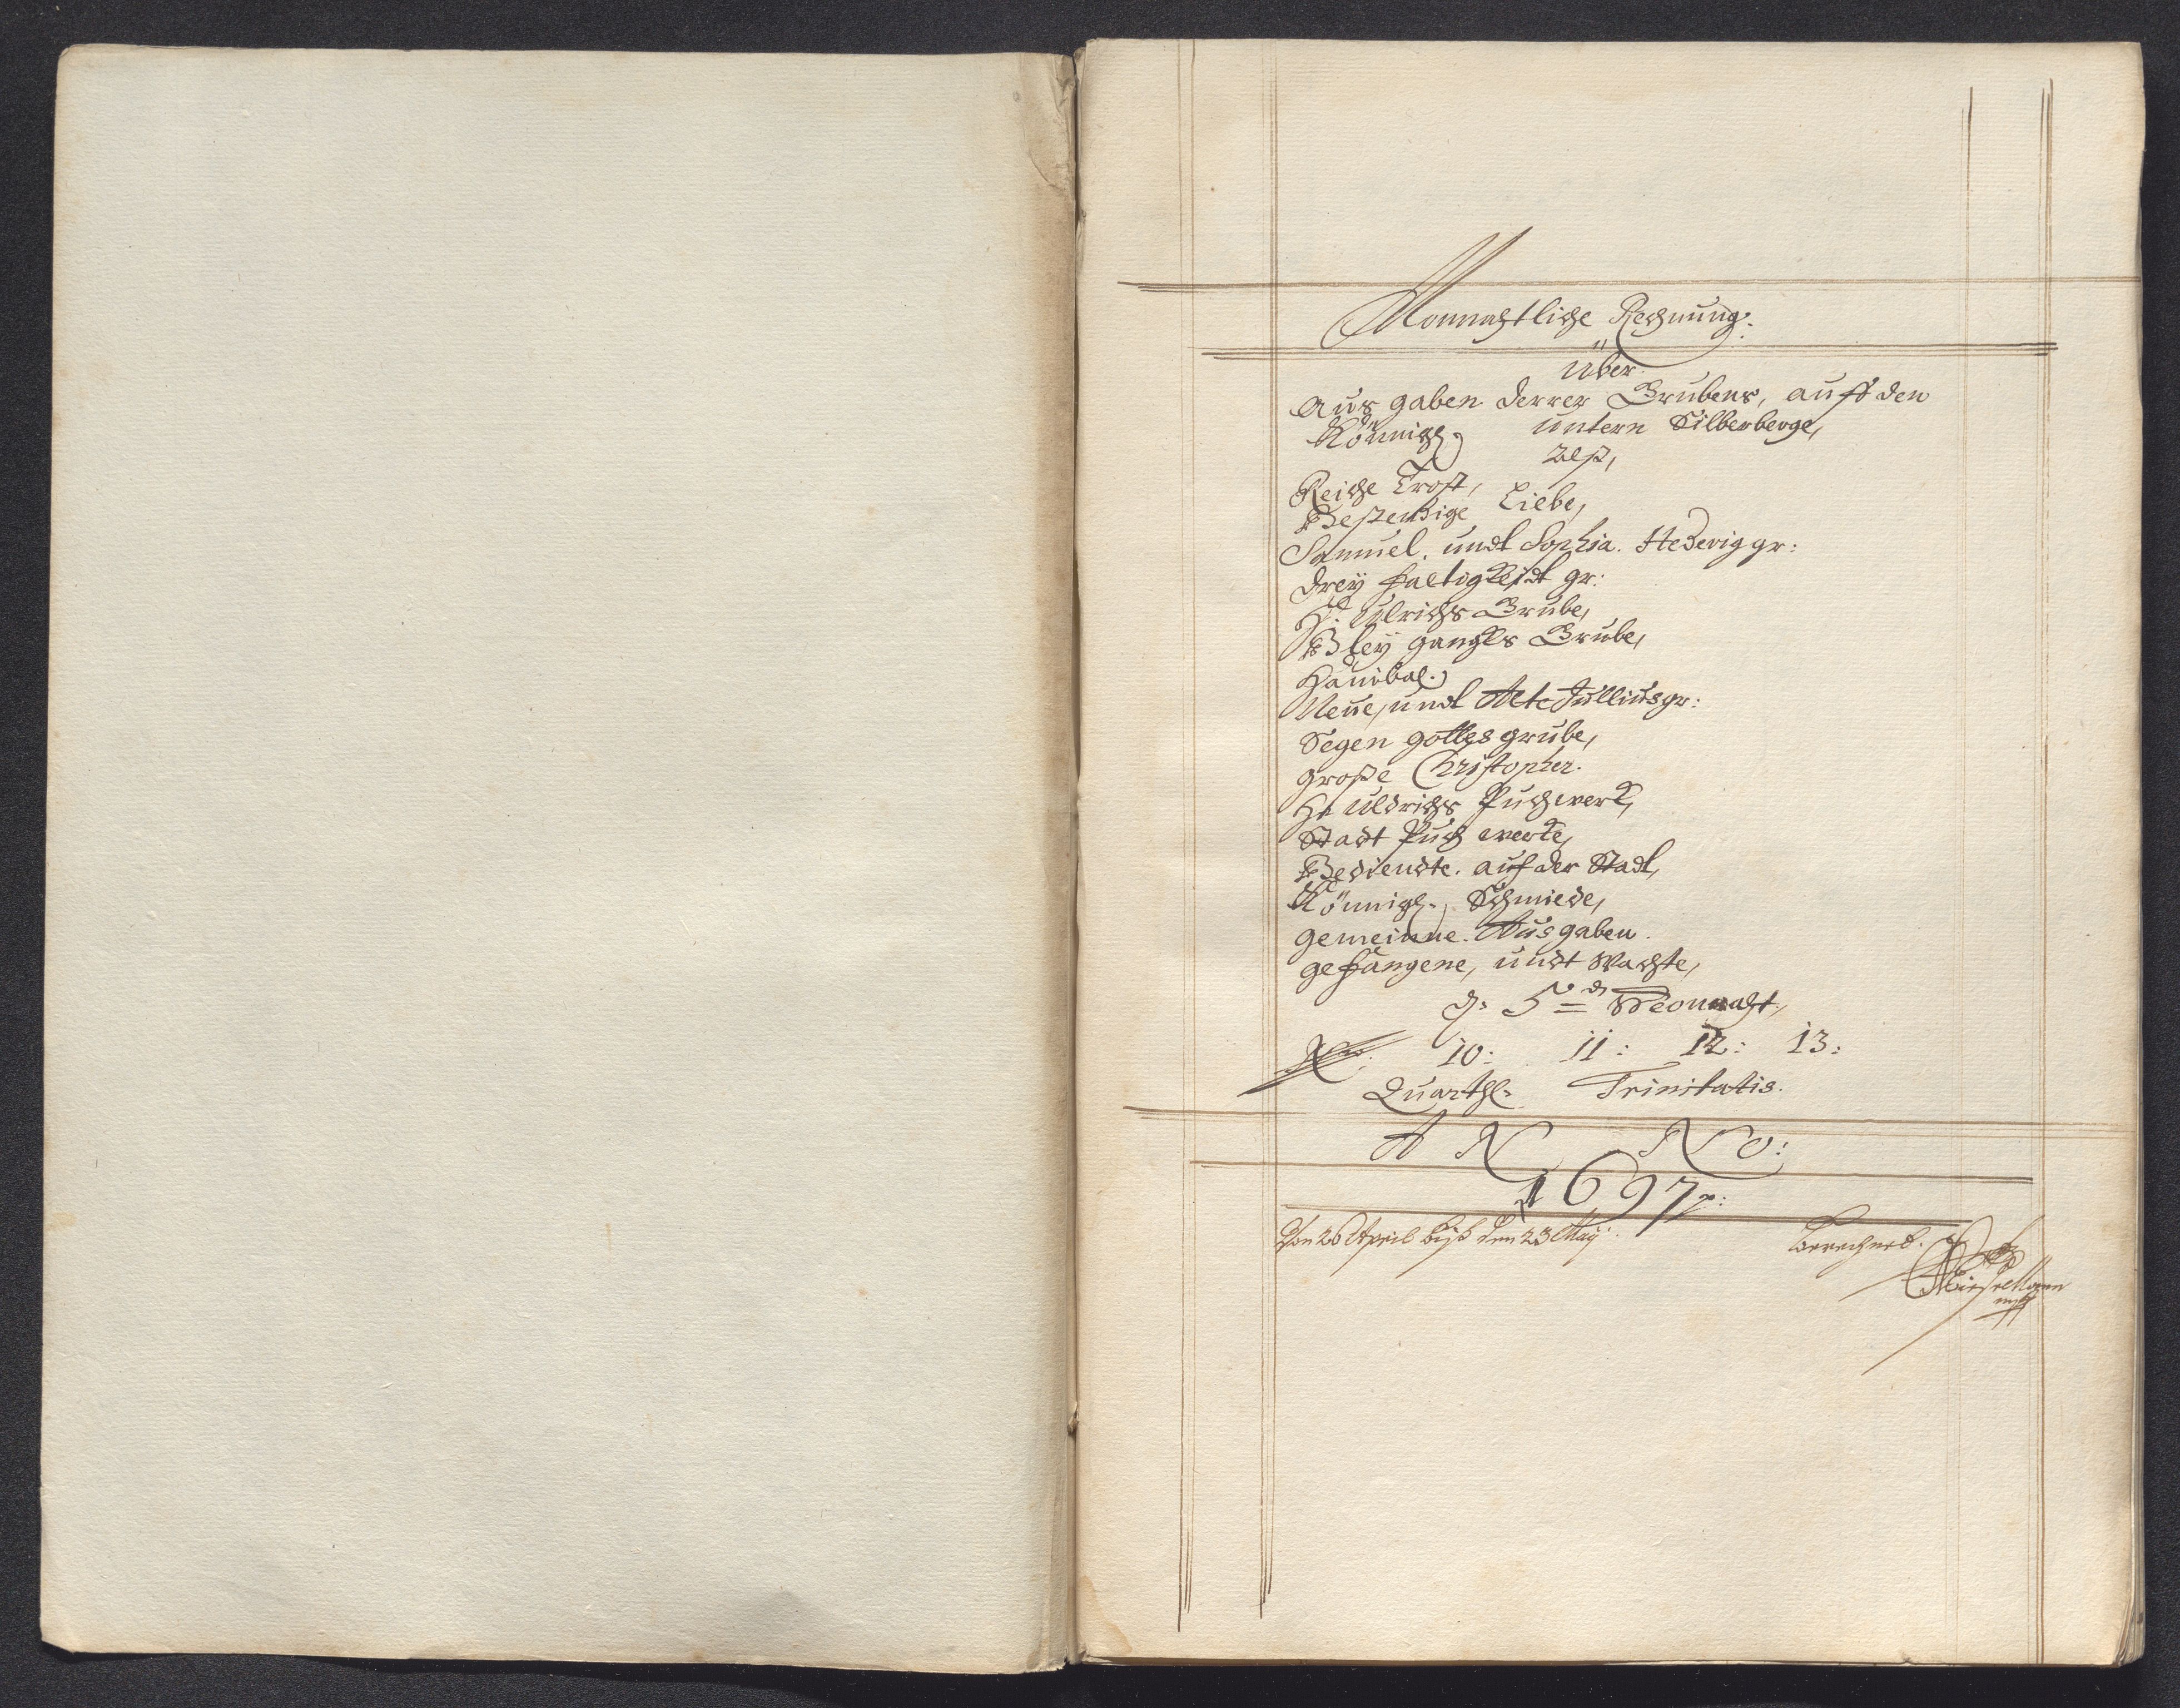 Monnahtliche Rechnung:
über
Ausgaben derrer Grubens, auff den
Könnigl: untern Silberberge,
Alß,
Reiche Trost,
Bestendige Liebe,
Samuel. undt Sophia. Hedevig gr:
Dreÿ faltigkeidt gr:
H: Ulrichs Grube,
Bleÿ gangks Grube,
Hanibal.
Neue, undt Alte Jullius gr:
Segen gottes grube,
große Christopher.
H: Uldrichs Puchwerk,
Stadt Puch werke,
Bediendte. auf der Stadt,
Könnigl: Schmiede,
gemeinne. Ausgaben.
gefangene, undt Wachte,
d: 5 Monnaht,
No: 10: 11: 12: 13:
Quarthl: Trinitatis.
ANNO:
1697
Von 26 April biß den 23 Maÿ
berechned.